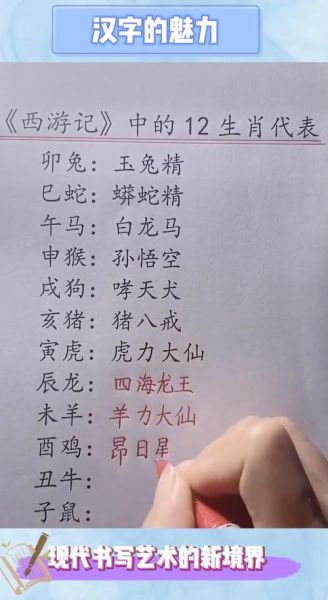 汉字的魅力
《西游记》中的12生肖代表
卯兔：玉兔精
巳蛇：蟒蛇精
午马：白龙马
申猴：孙悟空
戌狗：哮天犬
亥猪：猪八戒
寅虎：虎力大仙
辰龙：四海龙王
未羊：羊力大仙
酉鸡：昂日星
丑牛：
子鼠：
现代书写艺术的新境界